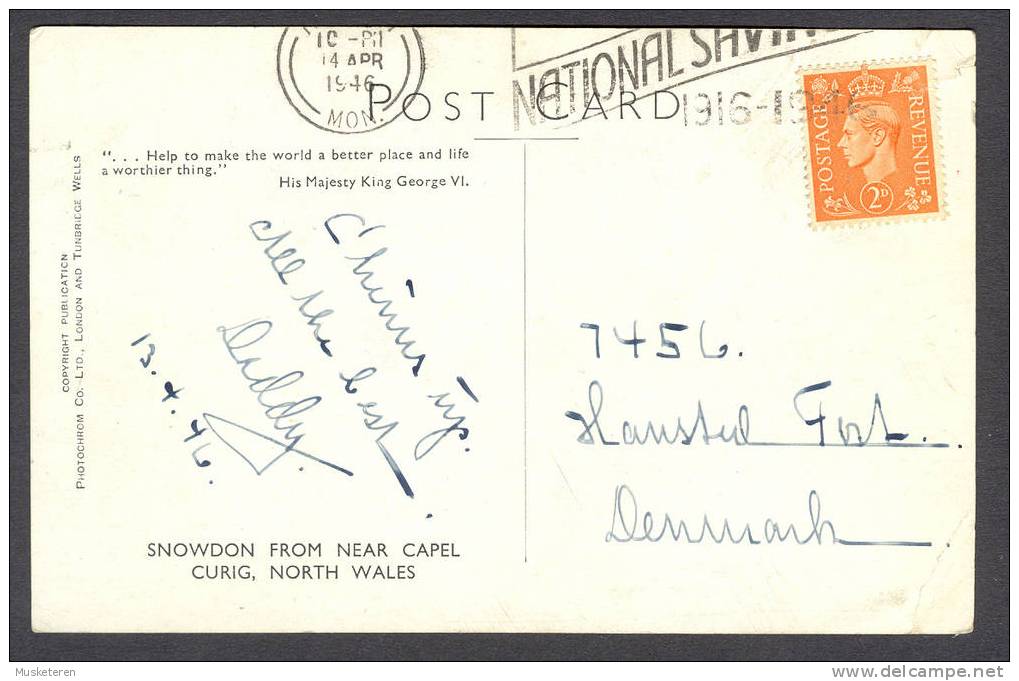 10 - PM
14 APR
1946
MON.
NATIONAL SAVIN
1916-1946
POST CARD
POSTAGE
REVENUE
2D
". . . Help to make the world a better place and life
a worthier thing."
His Majesty King George VI.
COPYRIGHT PUBLICATION
PHOTOCHROM CO. LTD., LONDON AND TUNBRIDGE WELLS
Chinns up.
All the best.
Daddy.
13.4.46.
7456.
Hansted Fort.
Denmark
SNOWDON FROM NEAR CAPEL
CURIG, NORTH WALES
Musketeren
www.delcampe.net